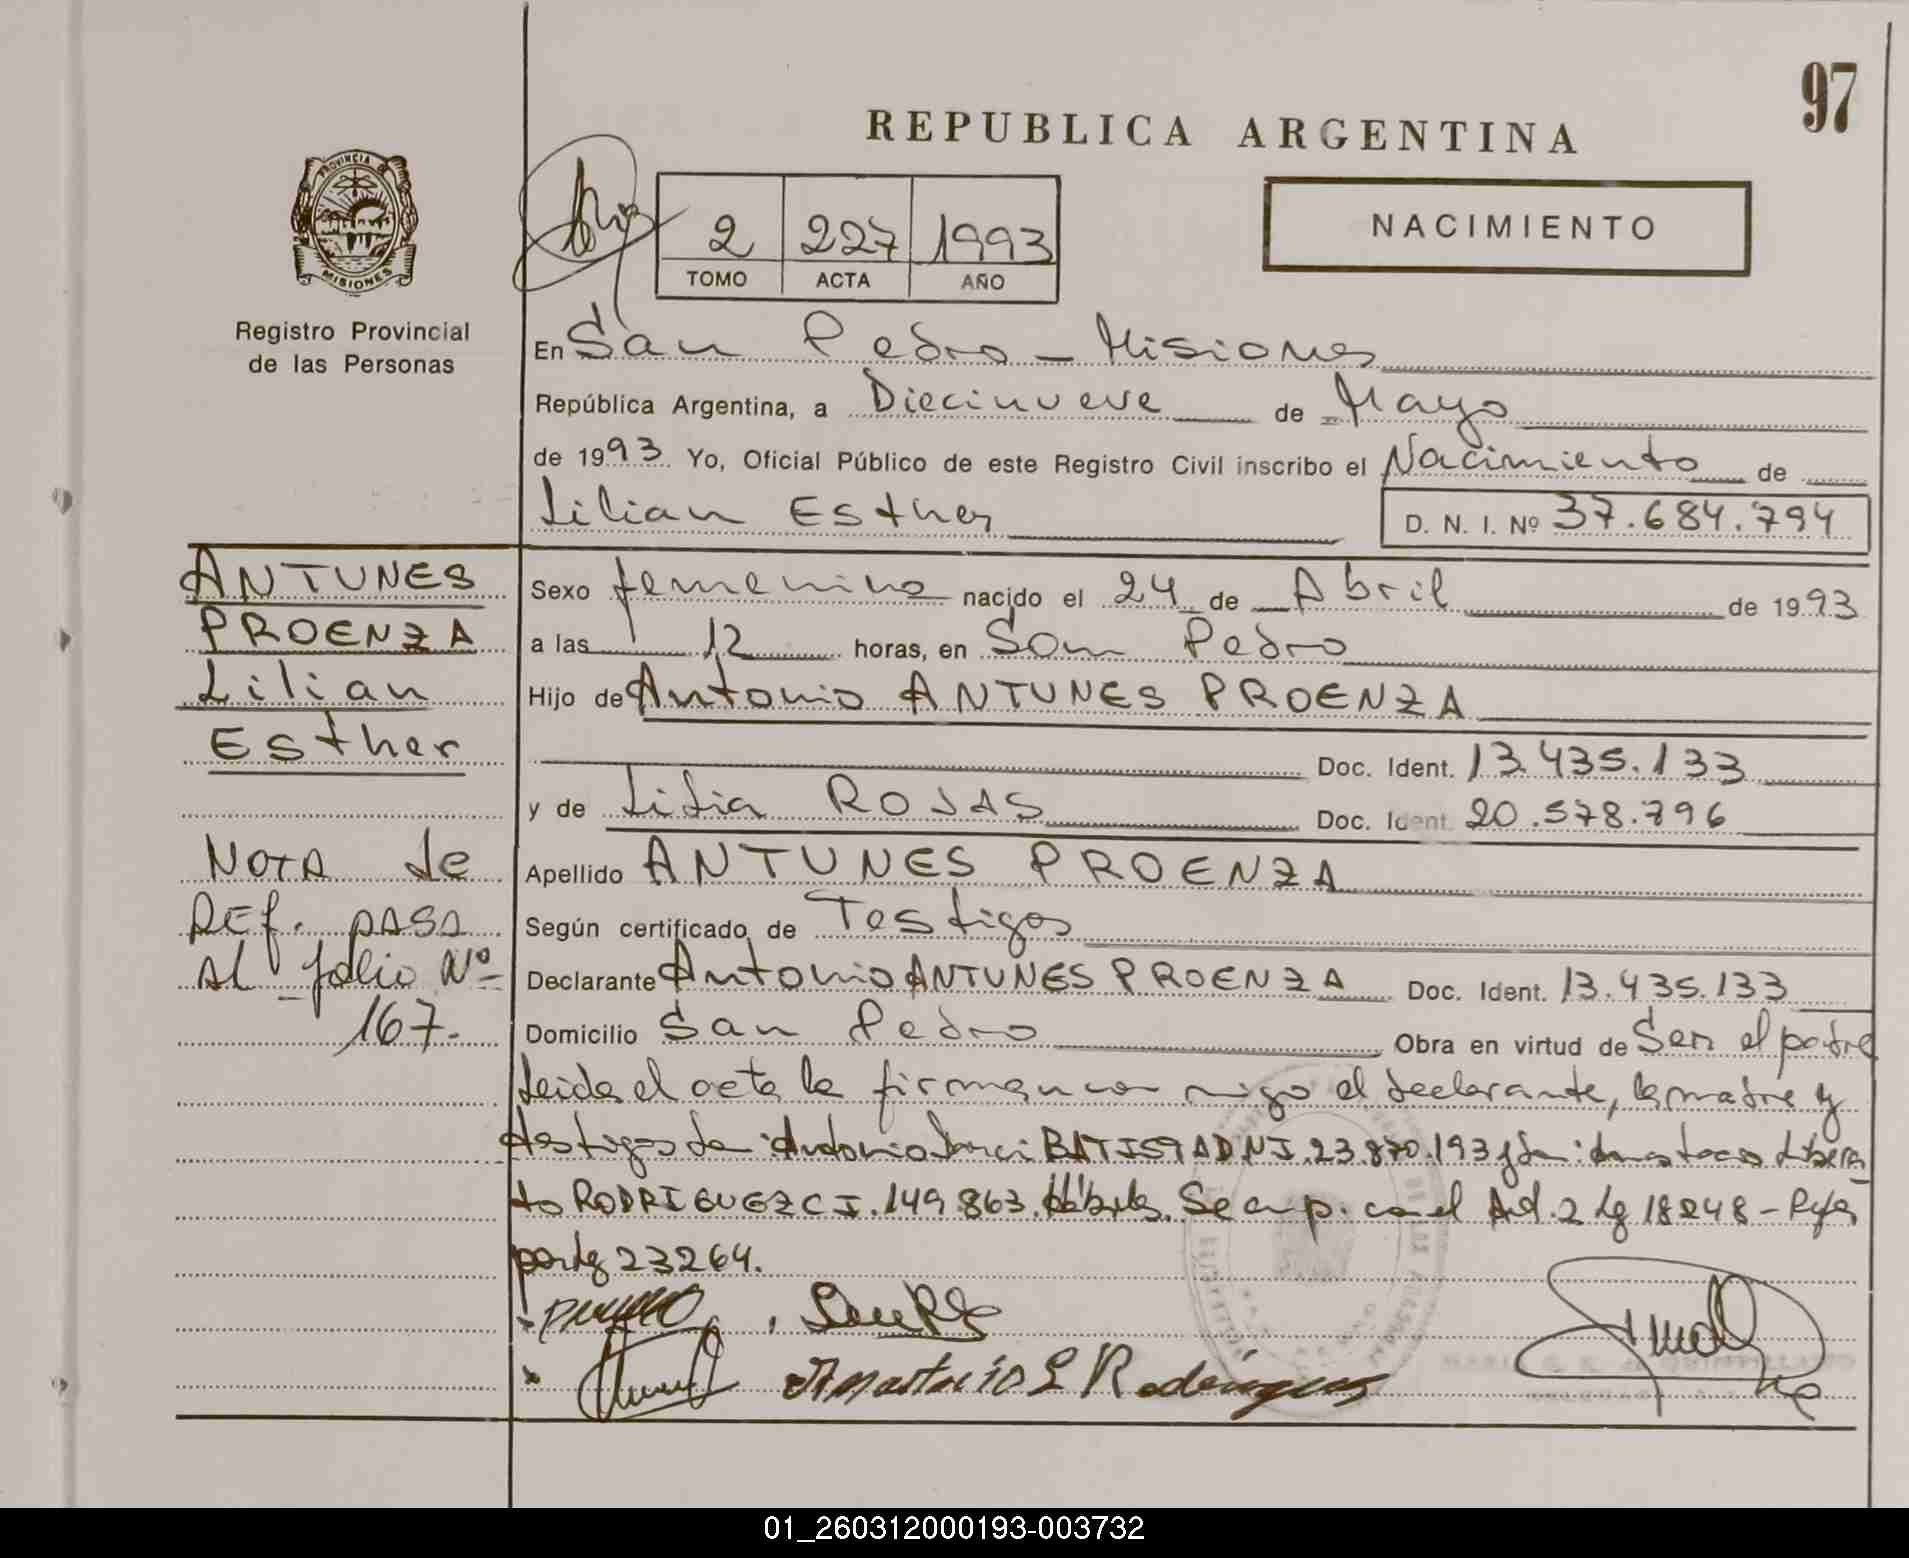 97
REPUBLICA ARGENTINA
NACIMIENTO
PROVINCIA DE
MISIONES
Registro Provincial
de las Personas
2 227 1993
TOMO ACTA AÑO
En San Pedro - Misiones
República Argentina, a Diecinueve de Mayo
de 1993 Yo, Oficial Público de este Registro Civil inscribo el Nacimiento de
Lilian Esther
D. N. I. Nº 37.684.794
ANTUNES
PROENZA
Lilian
Esther
Nota de
Ref. pasa
al folio Nº
167.-
Sexo femenino nacido el 24 de Abril de 1993
a las 12 horas, en San Pedro
Hijo de Antonio ANTUNES PROENZA
Doc. Ident. 13.435.133
y de Lidia ROJAS Doc. Ident. 20.578.796
Apellido ANTUNES PROENZA
Según certificado de Testigos
Declarante Antonio ANTUNES PROENZA Doc. Ident. 13.435.133
Domicilio San Pedro Obra en virtud de Ser el padre
Leida el acta la firman con migo el declarante, la madre y
testigos Antonio BATISTA DNI 23.870.193 y Libera
to RODRIGUEZ C I. 149.863. Hábiles. Se cump. con el Art. 2 Ley 18248 -
por ley 23264.
Anastacio L Rodriguez
01_260312000193-003732